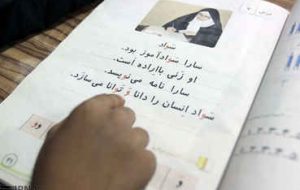 سواد
سارا سوادآموز بود.
او زنی بااراده است.
سارا نامه می‌نویسد.
سواد انسان را دانا و توانا می‌سازد.
و